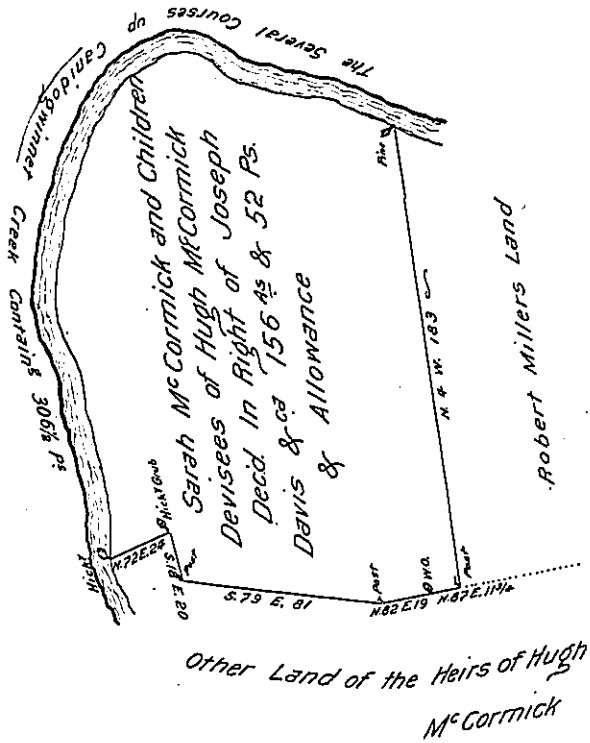 The Several Courses up
Canidogwinner Creek Containg 306½ Ps
Sarah McCormick and Children
Devisees of Hugh McCormick
Decd. In Right of Joseph
Davis & ca 156 As & 52 Ps.
& Allowance
Pine
N. 4 W. 183
Robert Millers Land
Hicky
N.72E.24
Hicky Grub
S.18 E. 20
Post
S.79 E. 81
Post
N.82E.19
W.O.
N.87E.11¾
Post
Other Land of the Heirs of Hugh
McCormick